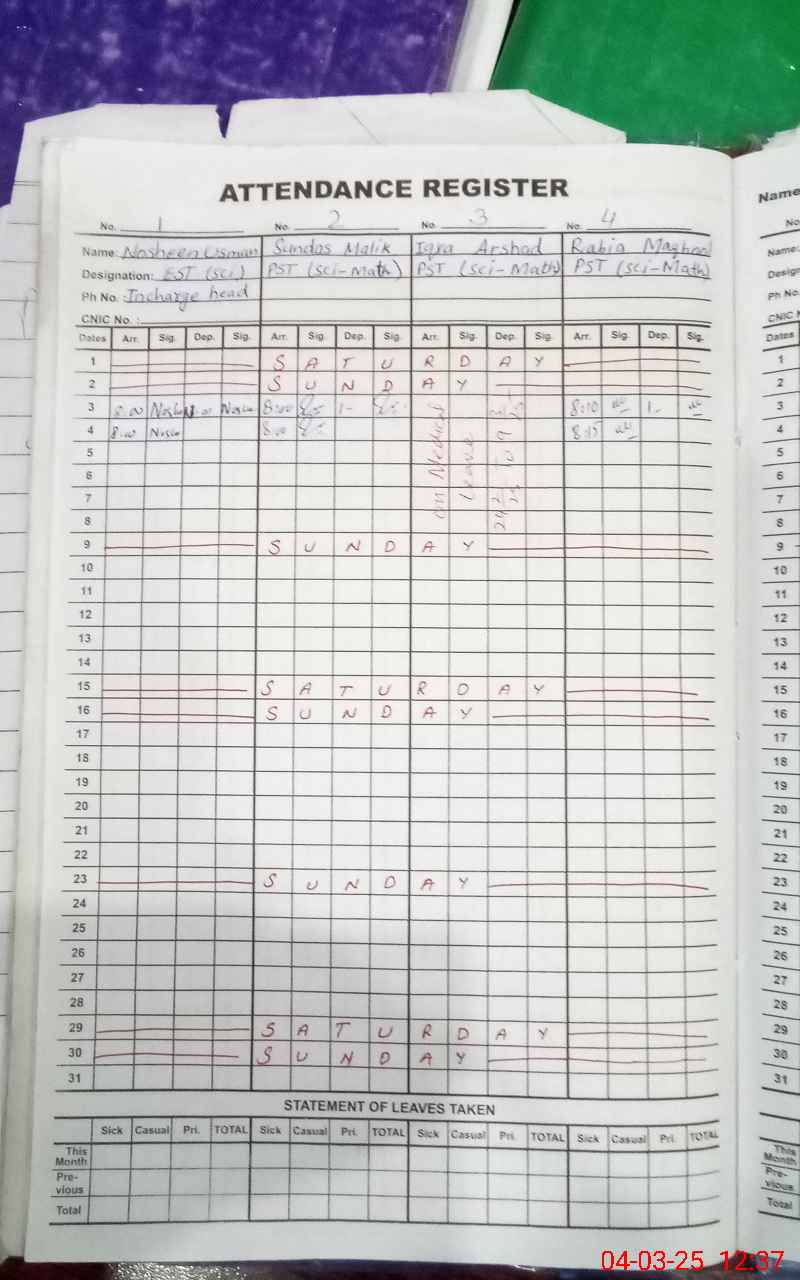 ATTENDANCE REGISTER
Name
No. 1 No. 2 No. 3 No. 4
No
Name: Nosheen Usman Sundas Malik Iqra Arshad Rabia
Name:
Designation: EST (Sci) PST (Sci-Math) PST (Sci-Math) PST (Sci-Math)
Ph No.: Incharge head
Ph No
CNIC No.:
Dates Arr. Sig. Dep. Sig. Arr. Sig. Dep. Sig. Arr. Sig. Dep. Sig. Arr. Sig. Dep. Sig.
Dates
1 S A T U R D A Y
1
2 S U N D A Y
2
3 8:00 8:00 1- 8:10 1-
3
4 8:00 8:00 8:15
4
on Medical
Leave
5
5
6
6
7
7
8
8
9 S U N D A Y
9
10
10
11
11
12
12
13
13
14
14
15 S A T U R D A Y
15
16 S U N D A Y
16
17
17
18
18
19
19
20
20
21
21
22
22
23 S U N D A Y
23
24
24
25
25
26
26
27
27
28
28
29 S A T U R D A Y
29
30 S U N D A Y
30
31
31
STATEMENT OF LEAVES TAKEN
Sick Casual Pri. TOTAL Sick Casual Pri. TOTAL Sick Casual Pri. TOTAL Sick Casual Pri. TOTAL
This
Month
This
Month
Pre-
vious
Pre-
vious
Total
Total
04-03-25 12:37